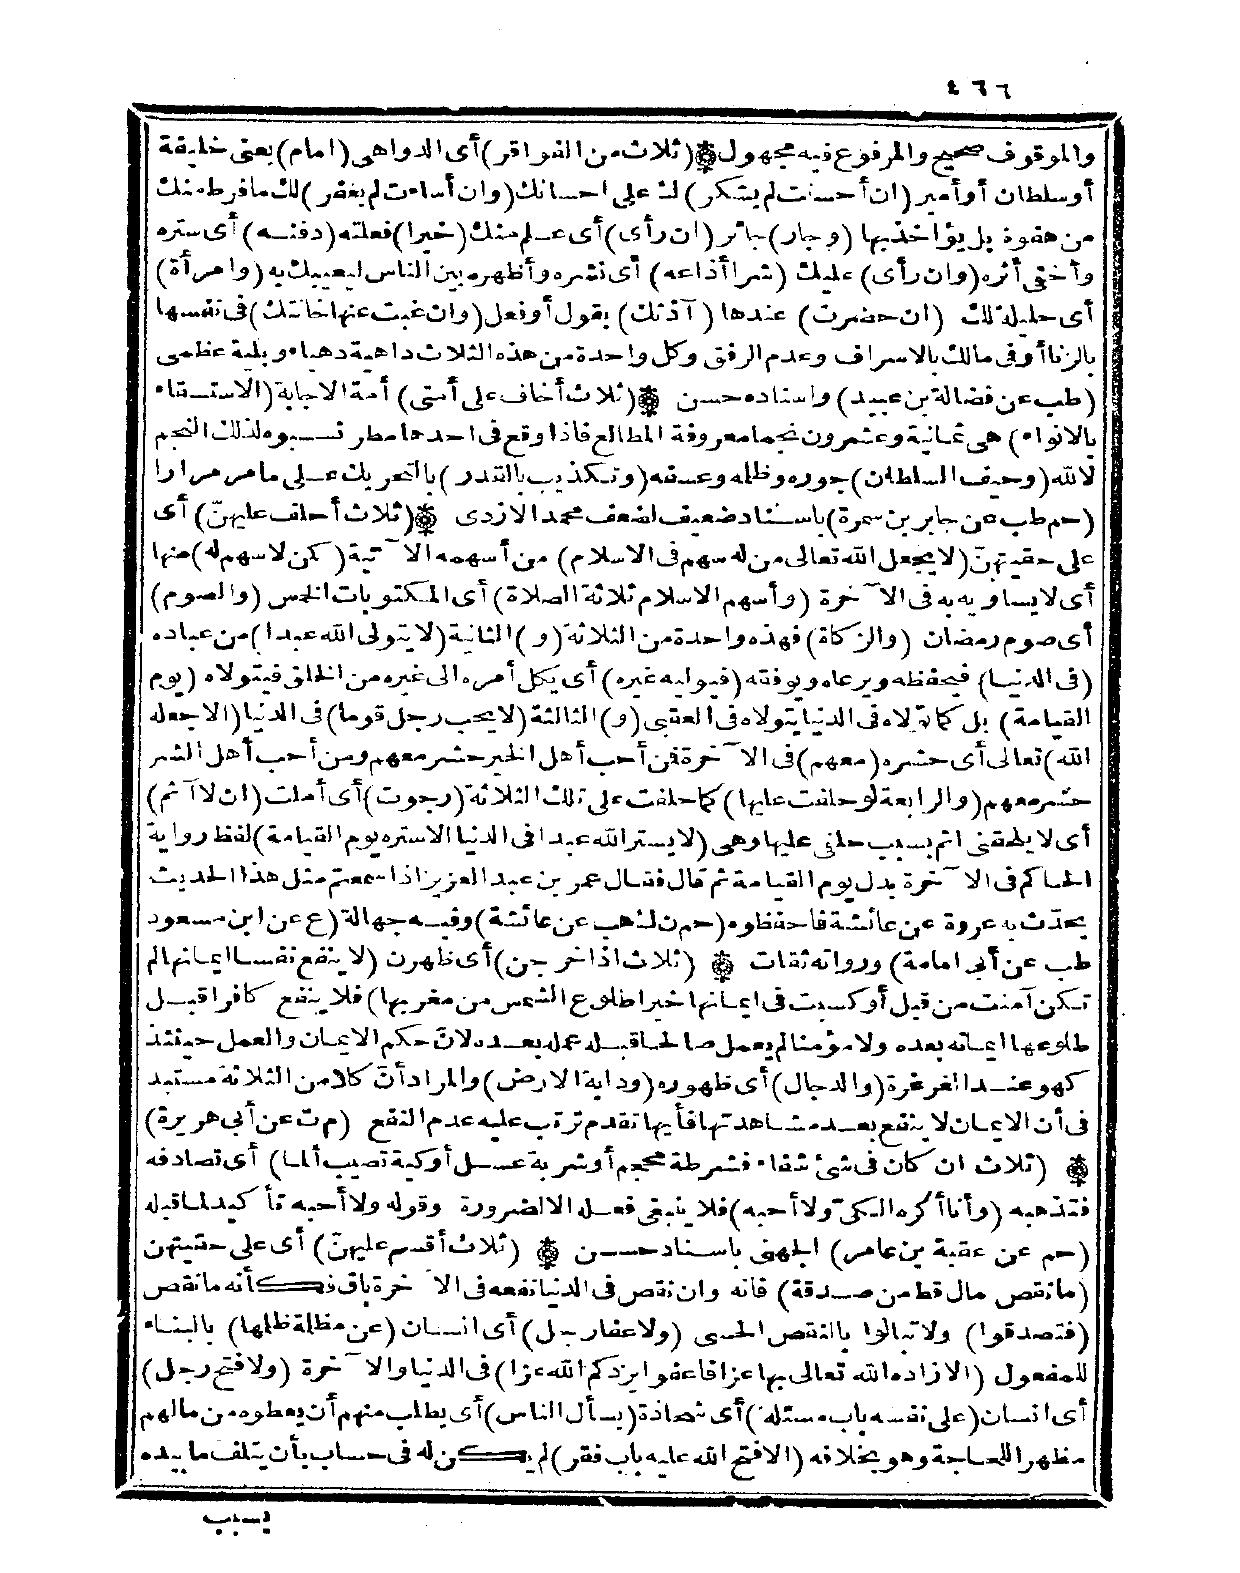 ٤٦٦
والموقوف صحيح والمرفوع فيه مجهول ۞ (ثلاث من الفواقر) أى الدواهى (امام) يعنى خليفة
أو سلطان أو أمير (ان أحسنت لم يشكر) لك على احسانك (وان أساءت لم يغفر) لك ما فرط منك
من هفوة بل يؤاخذ بها (وجار) جائر (ان رأى) أى عـلم منك (خيرا) فعلته (دفنه) أى ستره
وأخفى أثره (وان رأى) عليك (شرا أذاعه) أى نشره وأظهره بين الناس ليعيبك به (وامرأة)
أى حليلة لك (ان حضرت) عندها (آذتك) بقول أو فعل (وان غبت عنها خانتك) فى نفسها
بالزنا أو فى مالك بالاسراف وعدم الرفق وكل واحدة من هذه الثلاث داهية دهياء وبلية عظمى
(طب عن فضالة بن عبيد) واسناده حسن ۞ (ثلاث أخاف على أمتى) أمة الاجابة (الاستسقاء
بالانواء) هى ثمانية وعشرون نجما معروفة المطالع فاذا وقع فى احدها مطر نسبوه لذلك النجم
لا لله (وحيف السلطان) جوره وظلمه وعسفه (وتكذيب بالقدر) بالتحريك عـلى ما مر مرارا
(حم طب عن جابر بن سمرة) باسناد ضعيف لضعف محمد الازدى ۞ (ثلاث أحلف عليهنّ) أى
على حقيتهنّ (لا يجعل الله تعالى من له سهم فى الاسلام) من أسهمه الآتية (كن لا سهم له) منها
أى لا يساويه به فى الآخرة (وأسهم الاسلام ثلاثة الصلاة) أى المكتوبات الخمس (والصوم)
أى صوم رمضان (والزكاة) فهذه واحدة من الثلاثة (و) الثانية (لا يتولى الله عبدا) من عباده
(فى الدنيا) فيحفظه ويرعاه ويوفقه (فيوليه غيره) أى يكل أمره الى غيره من الخلق فيتولاه (يوم
القيامة) بل كما تولاه فى الدنيا يتولاه فى العقبى (و) الثالثة (لا يحب رجل قوما) فى الدنيا (الا جعله
الله) تعالى أى حشره (معهم) فى الآخرة فمن أحب أهل الخير حشر معهم ومن أحب أهل الشر
حشر معهم (والرابعة لو حلفت عليها) كما حلفت على تلك الثلاثة (رجوت) أى أملت (ان لا آثم)
أى لا يلحقنى اثم بسبب حلفى عليها وهى (لا يستر الله عبدا فى الدنيا الا ستره يوم القيامة) لفظ رواية
الحاكم فى الآخرة بدل يوم القيامة ثم قال فقال عمر بن عبد العزيز اذا سمعتم مثل هذا الحديث
يحدّث به عروة عن عائشة فاحفظوه (حم ن ك هب عن عائشة) وفيه جهالة (ع عن ابن مسعود
طب عن أبى امامة) ورواته ثقات ۞ (ثلاث اذا خرجن) أى ظهرن (لا ينفع نفسا ايمانها لم
تكن آمنت من قبل أو كسبت فى ايمانها خيرا طلوع الشمس من مغربها) فلا ينفع كافرا قبـل
طلوعها ايمانه بعده ولا مؤمنا لم يعمل صالحا قبله عمله بعده لانّ حكم الايمان والعمل حينئذ
كهو عنـد الغرغرة (والدجال) أى ظهوره (ودابة الارض) والمراد أنّ كلا من الثلاثة مستبد
فى أن الايمان لا ينفع بعد مشاهدتها فأيها تقدم ترتب عليه عدم النفع (م ت عن أبى هريرة)
۞ (ثلاث ان كان فى شئ شفاء فشرطة محجم أو شربة عسل أو كية تصيب ألما) أى تصادفه
فتذهبه (وأنا أكره الكىّ ولا أحبه) فلا ينبغى فعله الا لضرورة وقوله ولا أحبه تأكيد لما قبله
(حم عن عقبة بن عامر) الجهنى باسناد حسن ۞ (ثلاث أقسم عليهنّ) أى على حقيتهن
(ما نقص مال قط من صدقة) فانه وان نقص فى الدنيا نفعه فى الآخرة باق فكأنه ما نقص
(فتصدقوا) ولا تبالوا بالنقص الحسى (ولا عفا رجل) أى انسان (عن مظلة ظلها) بالبناء
للمفعول (الا زاده الله تعالى بها عزا فاعفوا يزدكم الله عزا) فى الدنيا والآخرة (ولا فتح رجل)
أى انسان (على نفسه باب مسئلة) أى شحاذة (يسأل الناس) أى يطلب منهم أن يعطوه من مالهم
مظهرا للحاجة وهو بخلافه (الا فتح الله عليه باب فقر) لم يكن له فى حساب بأن يتلف ما بيده
بسبب